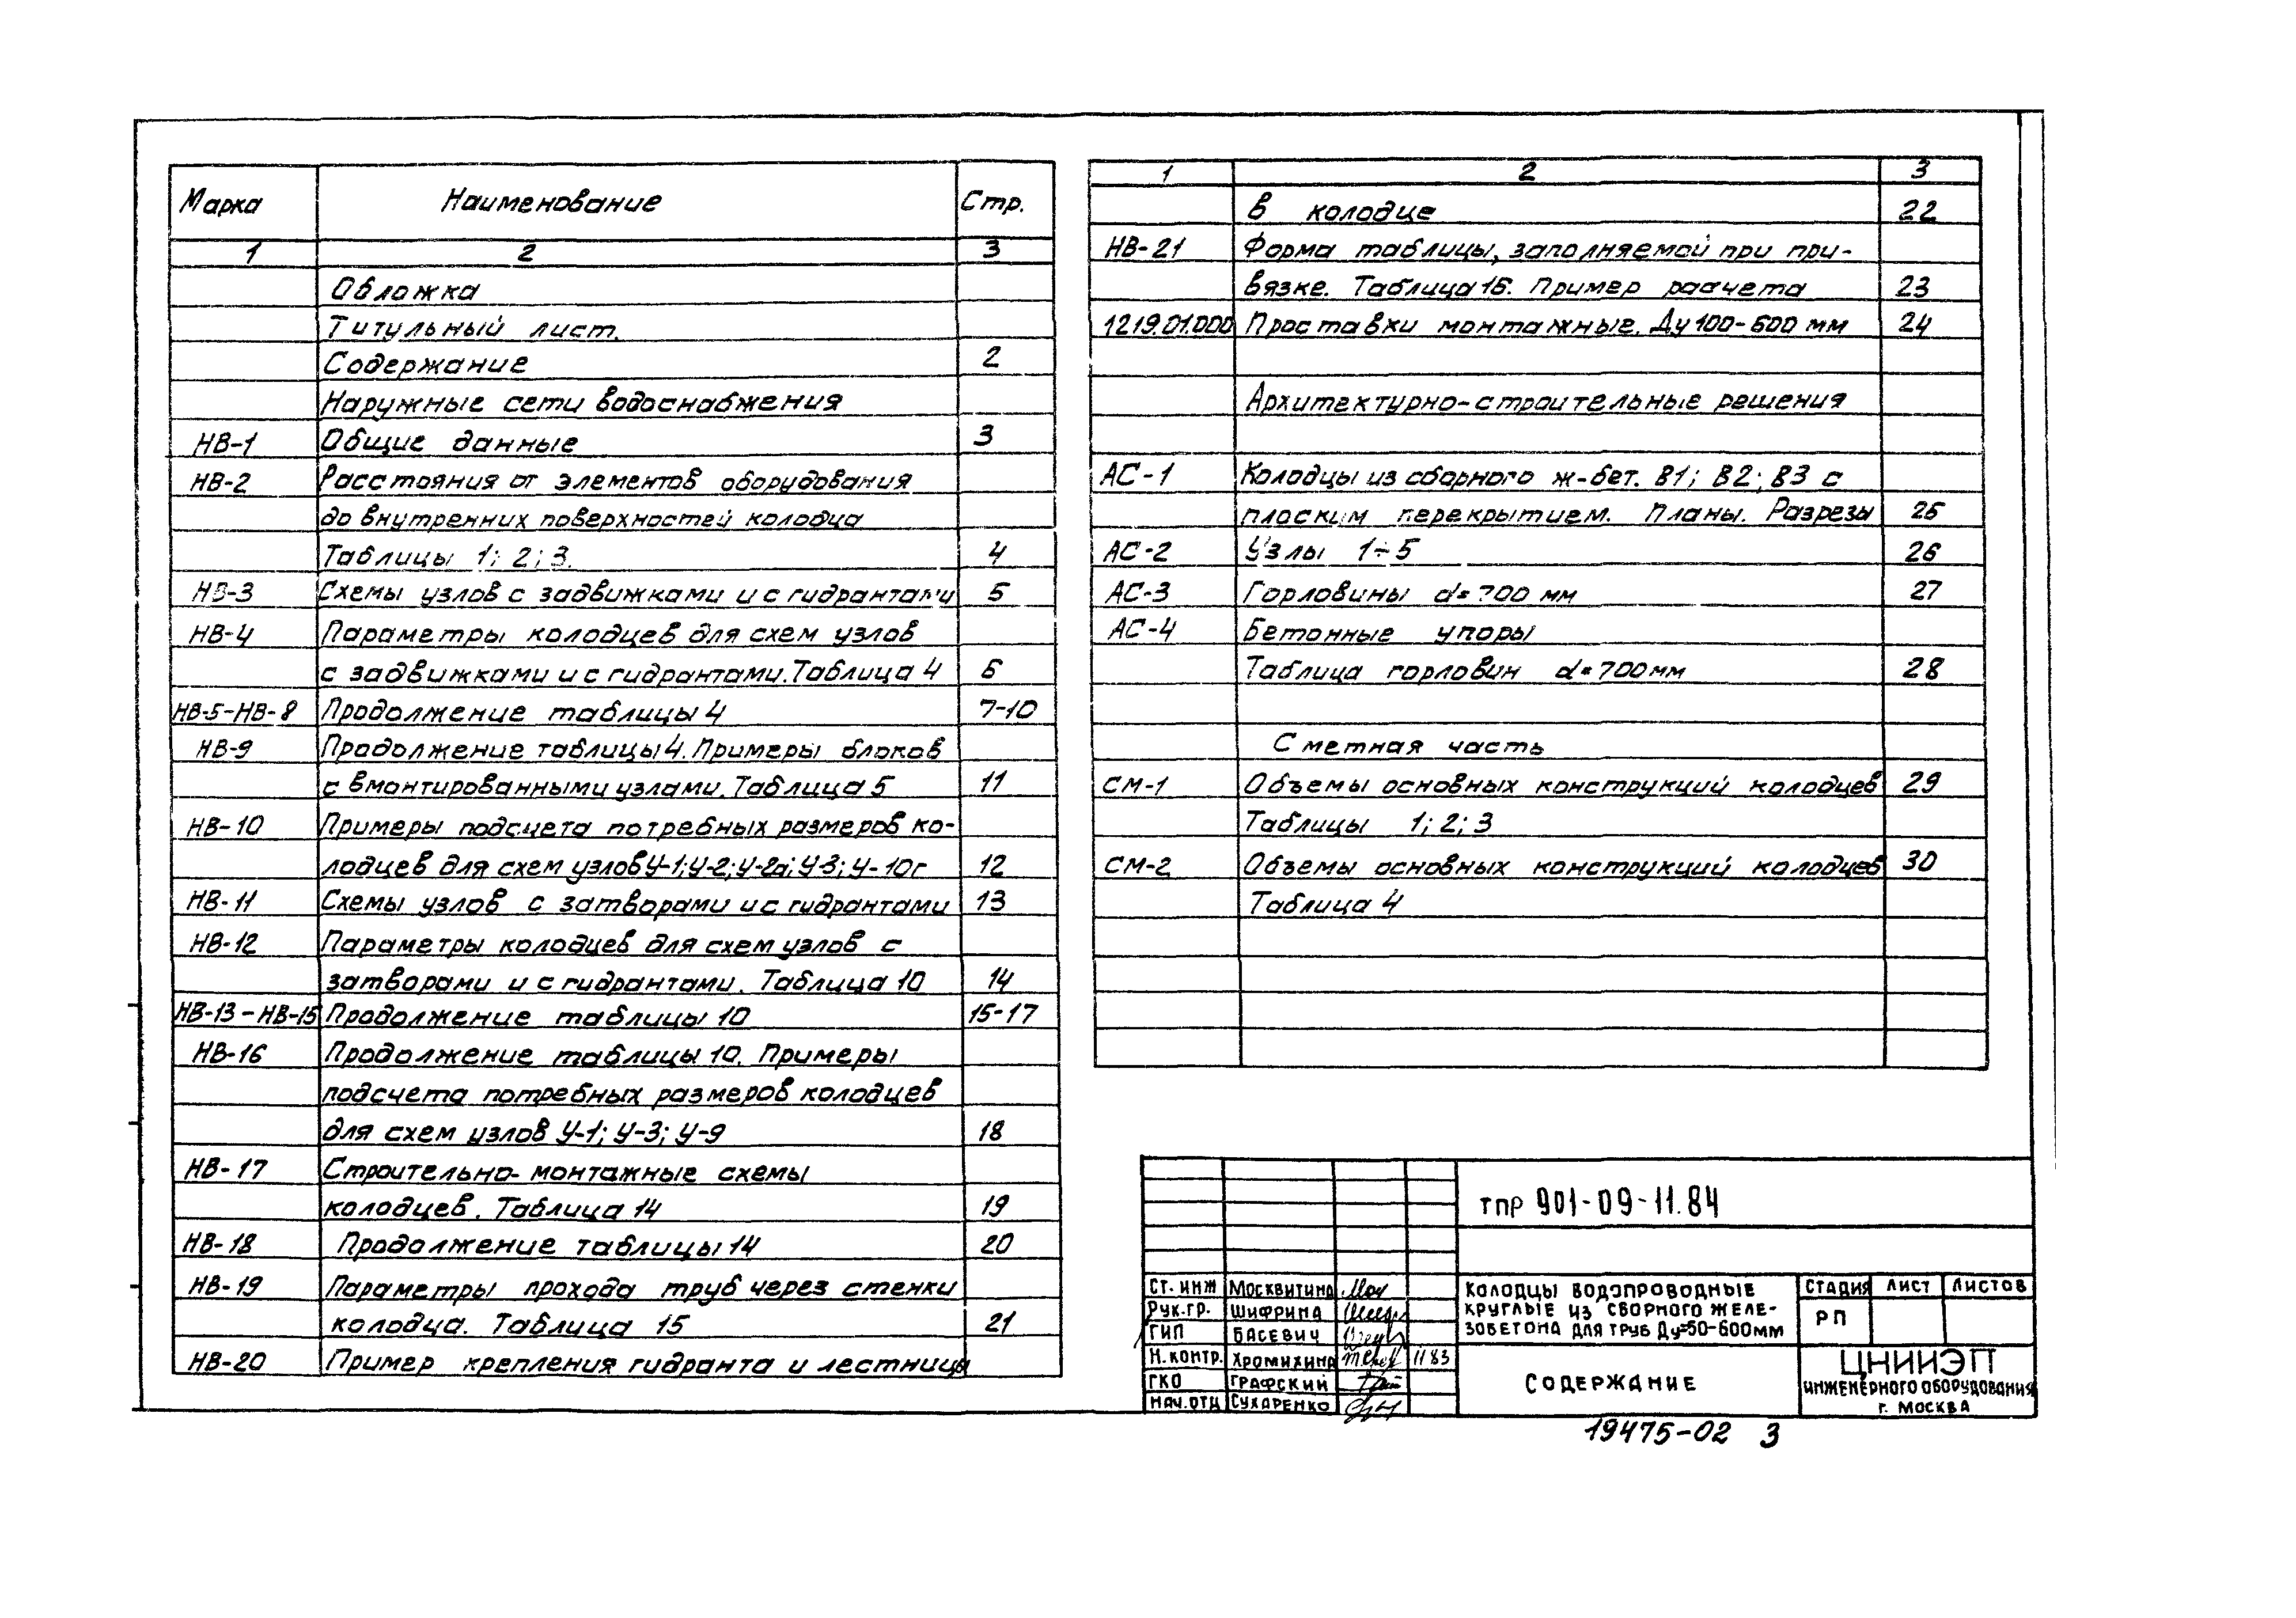 Марка Наименование Стр.
1 2 3
Обложка
Титульный лист.
Содержание 2
Наружные сети водоснабжения
НВ-1 Общие данные 3
НВ-2 Расстояния от элементов оборудования
до внутренних поверхностей колодца
Таблицы 1; 2; 3. 4
НВ-3 Схемы узлов с задвижками и с гидрантами 5
НВ-4 Параметры колодцев для схем узлов
с задвижками и с гидрантами. Таблица 4 6
НВ-5-НВ-8 Продолжение таблицы 4 7-10
НВ-9 Продолжение таблицы 4. Примеры блоков
с вмонтированными узлами. Таблица 5 11
НВ-10 Примеры подсчета потребных размеров ко-
лодцев для схем узлов У-1; У-2; У-2а; У-3; У-10г 12
НВ-11 Схемы узлов с затворами и с гидрантами 13
НВ-12 Параметры колодцев для схем узлов с
затворами и с гидрантами. Таблица 10 14
НВ-13-НВ-15 Продолжение таблицы 10 15-17
НВ-16 Продолжение таблицы 10. Примеры
подсчета потребных размеров колодцев
для схем узлов У-1; У-3; У-9 18
НВ-17 Строительно-монтажные схемы
колодцев. Таблица 14 19
НВ-18 Продолжение таблицы 14 20
НВ-19 Параметры прохода труб через стенки
колодца. Таблица 15 21
НВ-20 Пример крепления гидранта и лестницы
1 2 3
в колодце 22
НВ-21 Форма таблицы, заполняемой при при-
вязке. Таблица 16. Пример расчета 23
1219.01.000 Проставки монтажные. Ду 100-600 мм 24
Архитектурно-строительные решения
АС-1 Колодцы из сборного ж-бет. В1; В2; В3 с
плоским перекрытием. Планы. Разрезы 25
АС-2 Узлы 1÷5 26
АС-3 Горловины d=700 мм 27
АС-4 Бетонные упоры
Таблица горловин d=700 мм 28
Сметная часть
СМ-1 Объемы основных конструкций колодцев 29
Таблицы 1; 2; 3
СМ-2 Объемы основных конструкций колодцев 30
Таблица 4
ТПР 901-09-11.84
Ст. инж Москвитина
Рук.гр. Шифрина
ГИП Басевич
Н.контр. Хромихина 11 83
ГКО Графский
Нач.отд Сухаренко
Колодцы водопроводные
круглые из сборного желе-
зобетона для труб Ду=50-600мм
Стадия Лист Листов
РП
Содержание
ЦНИИЭП
инженерного оборудования
г. Москва
19475-02 3